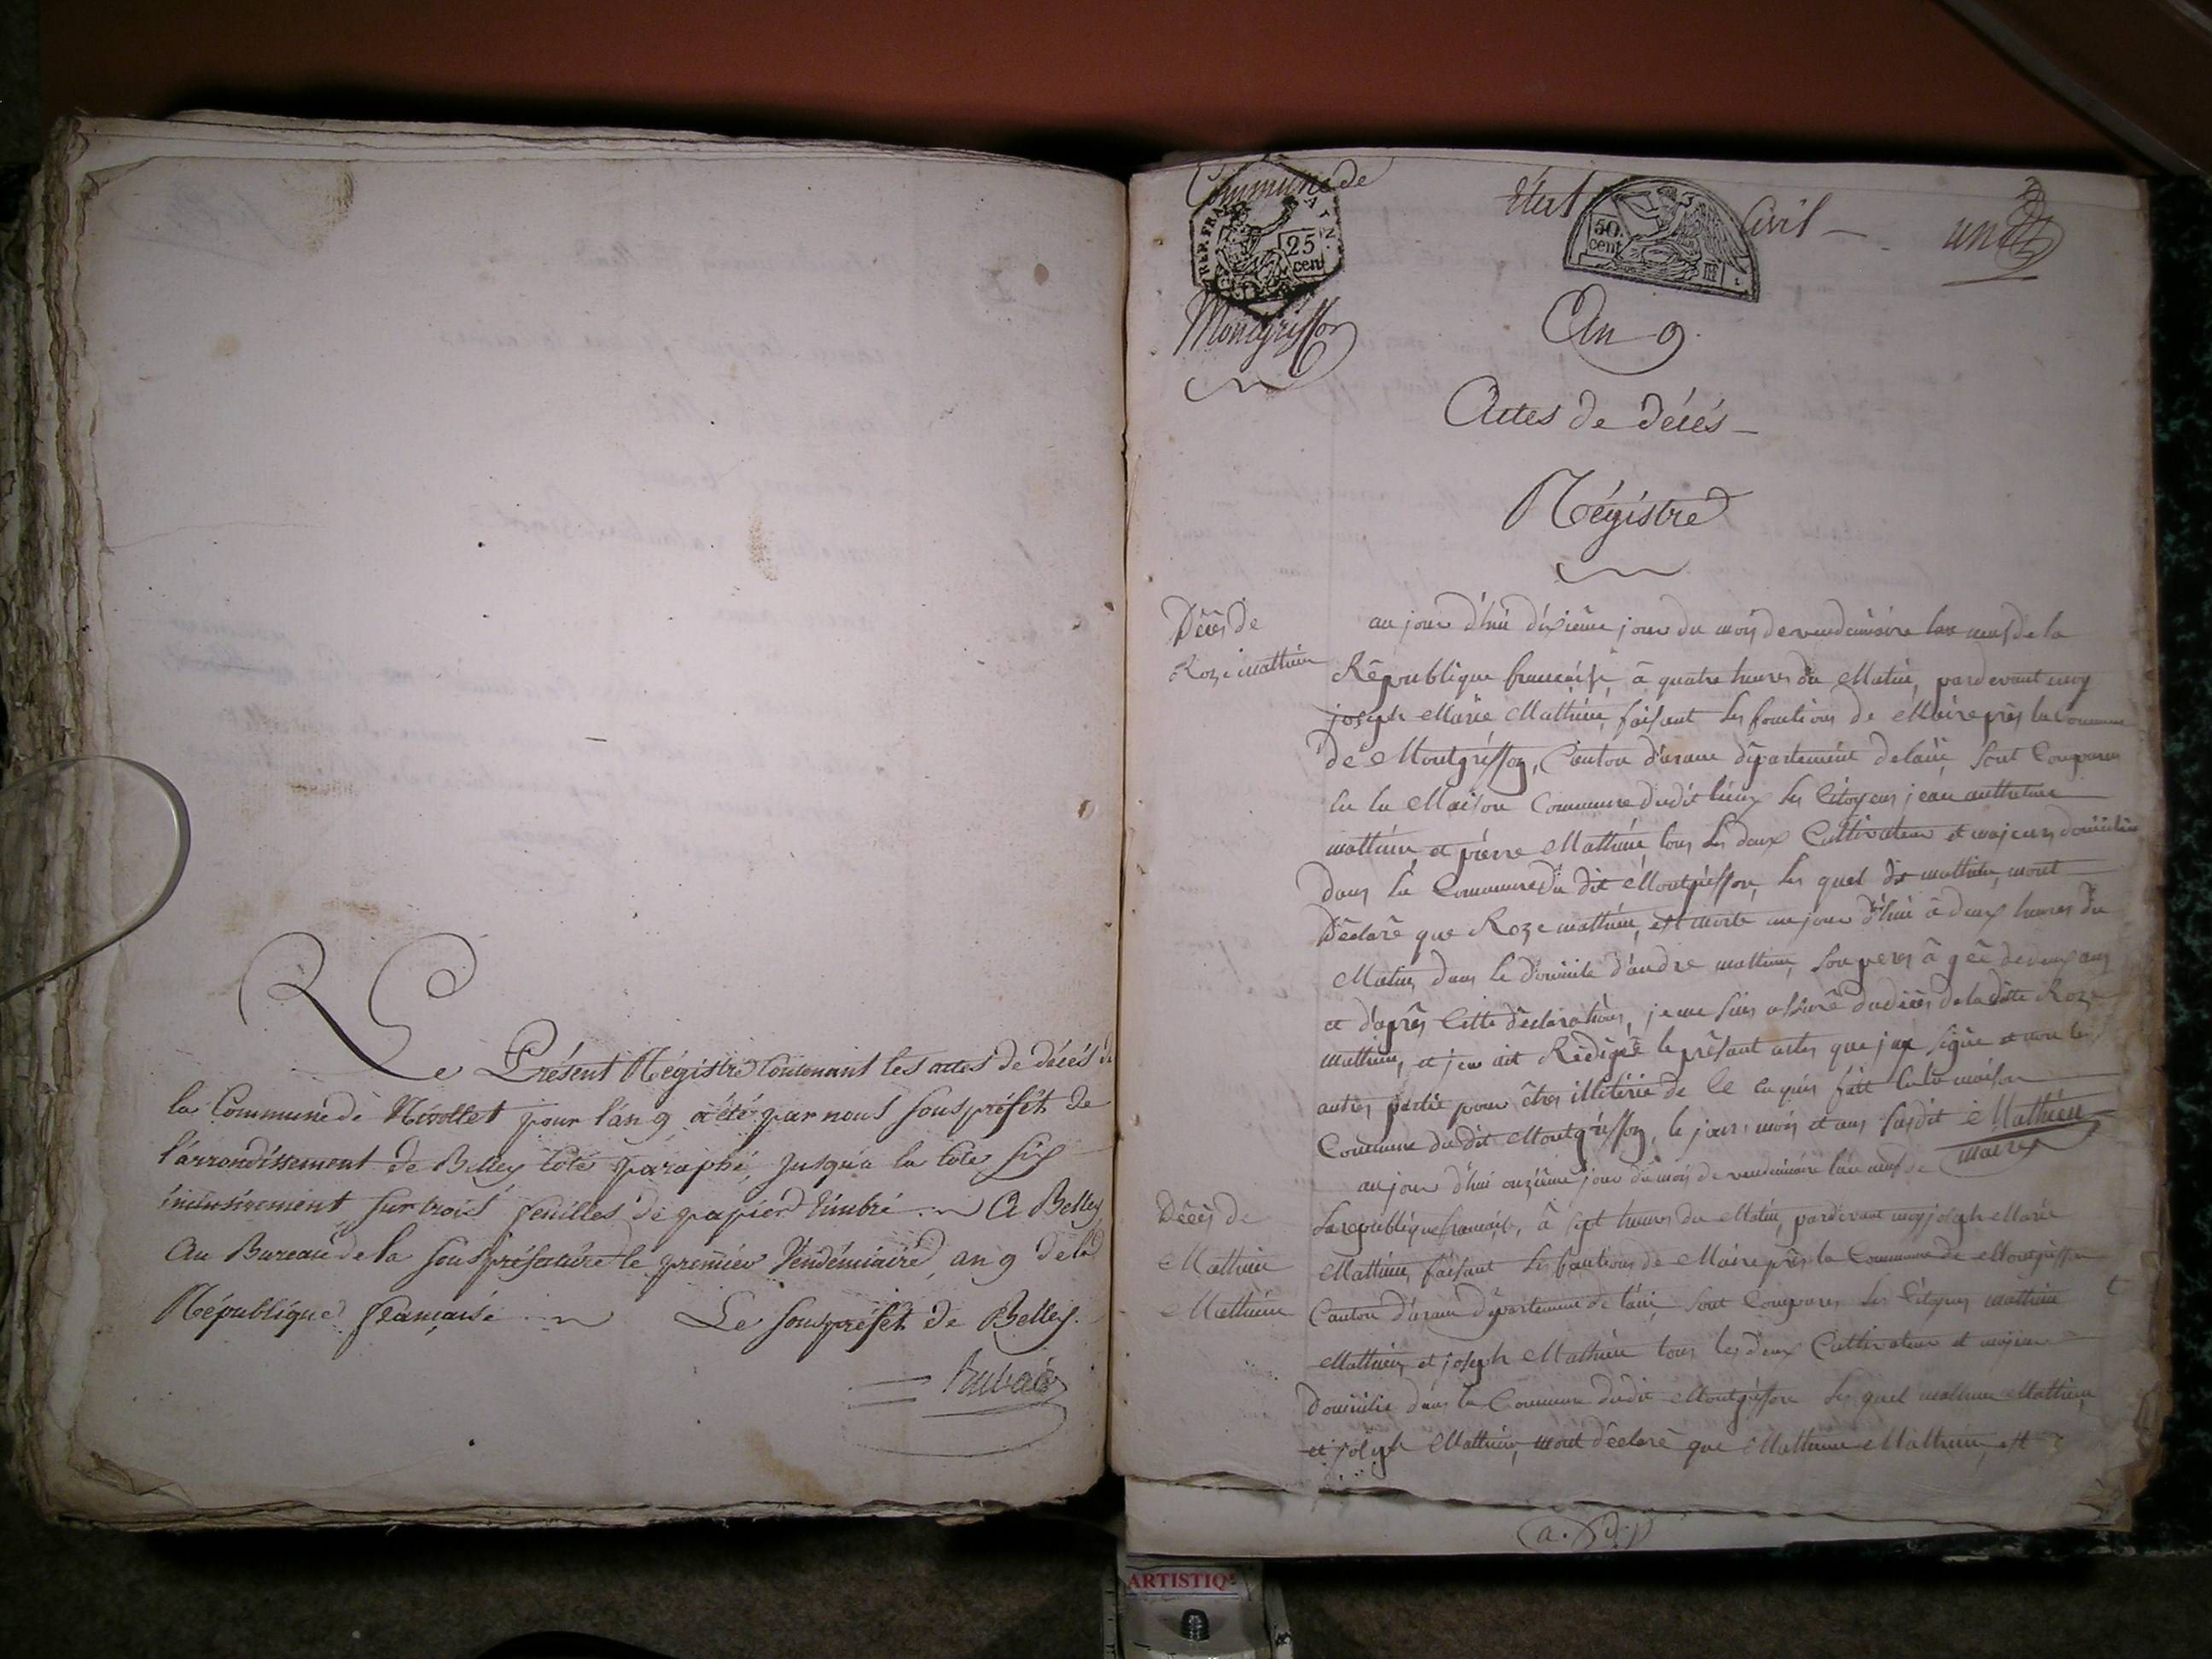 Le Présent Régistre Contenant les actes de décés de
la Commune de Nivollet pour l'an 9 a été par nous sous préfét de
l'arrondissement de Belley coté paraphé, jusqu'a la cote six
inclusivement sur trois feuilles de papier timbré. A Belley
Au Bureau de la sous préfecture le premier Vendémiaire, an 9 de la
République française. Le sous préfét de Belley.
Commune de
REP. FRA
25
cen
Montgriffon
État
50.
cent
Civil
un
An 9.
Actes de décés
Régistre
Décés de
Roze mathieu
au jour d'hui dixiême jour du mois de vendemiaire lan neuf de la
République francaise, à quatre heures du Matin, pardevant moy
joseph Marie Mathieu, faisant les fonctions de Maire près la Commune
de Montgriffon, Canton d'arane département de lain, sont Comparus
en la Maison Commune dudit lieux les Citoyens jean
mathieu, et pierre Mathieu tous les deux Cultivateur et majeurs domicilies
dans la Commune du dit Montgriffon, les quel dt mathieu, mont
Déclaré que Roze mathieu, est morte au jour d'hui à deux heures du
Matin dans le domicile d'andre mathieu, son peres âgée de ans
et daprês Cette déclarations, je me suis assuré du décès de la ditte Roze
mathieu, et jen ait Rédigré le présant actes que jay signé et non les
autres partie pour êtres illitérée de Ce enquis fait en la maison
Commune du dit Montgriffon, le jours mois et ans susdit Mathieu
maire
au jour d'hui onziême jour du mois de vendemiaire lan neuf de
Décès de
Mathieu
Mathieu
la république francaise, à sept heures du Matin, pardevant moy joseph Marie
Mathieu, faisant les fonctions de Maire près la Commune de Montgriffon
Canton d'arane département de lain, sont Comparus les Citoyens mathieu
Mathieu, et joseph Mathieu tous les deux Cultivateur et majeur
Domicilie dans la Commune dudit Montgriffon les quel mathieu Mathieu,
et joseph Mathieu, mont déclaré que Mathieu Mathieu, est
ARTISTIQ